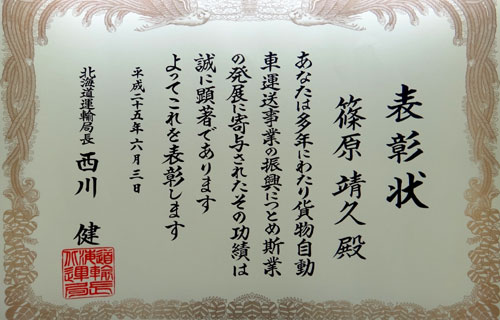 表彰状
篠原靖久殿
あなたは多年にわたり貨物自動
車運送事業の振興につとめ斯業
の発展に寄与されたその功績は
誠に顕著であります
よってこれを表彰します
平成二十五年六月三日
北海道運輸局長 西川健